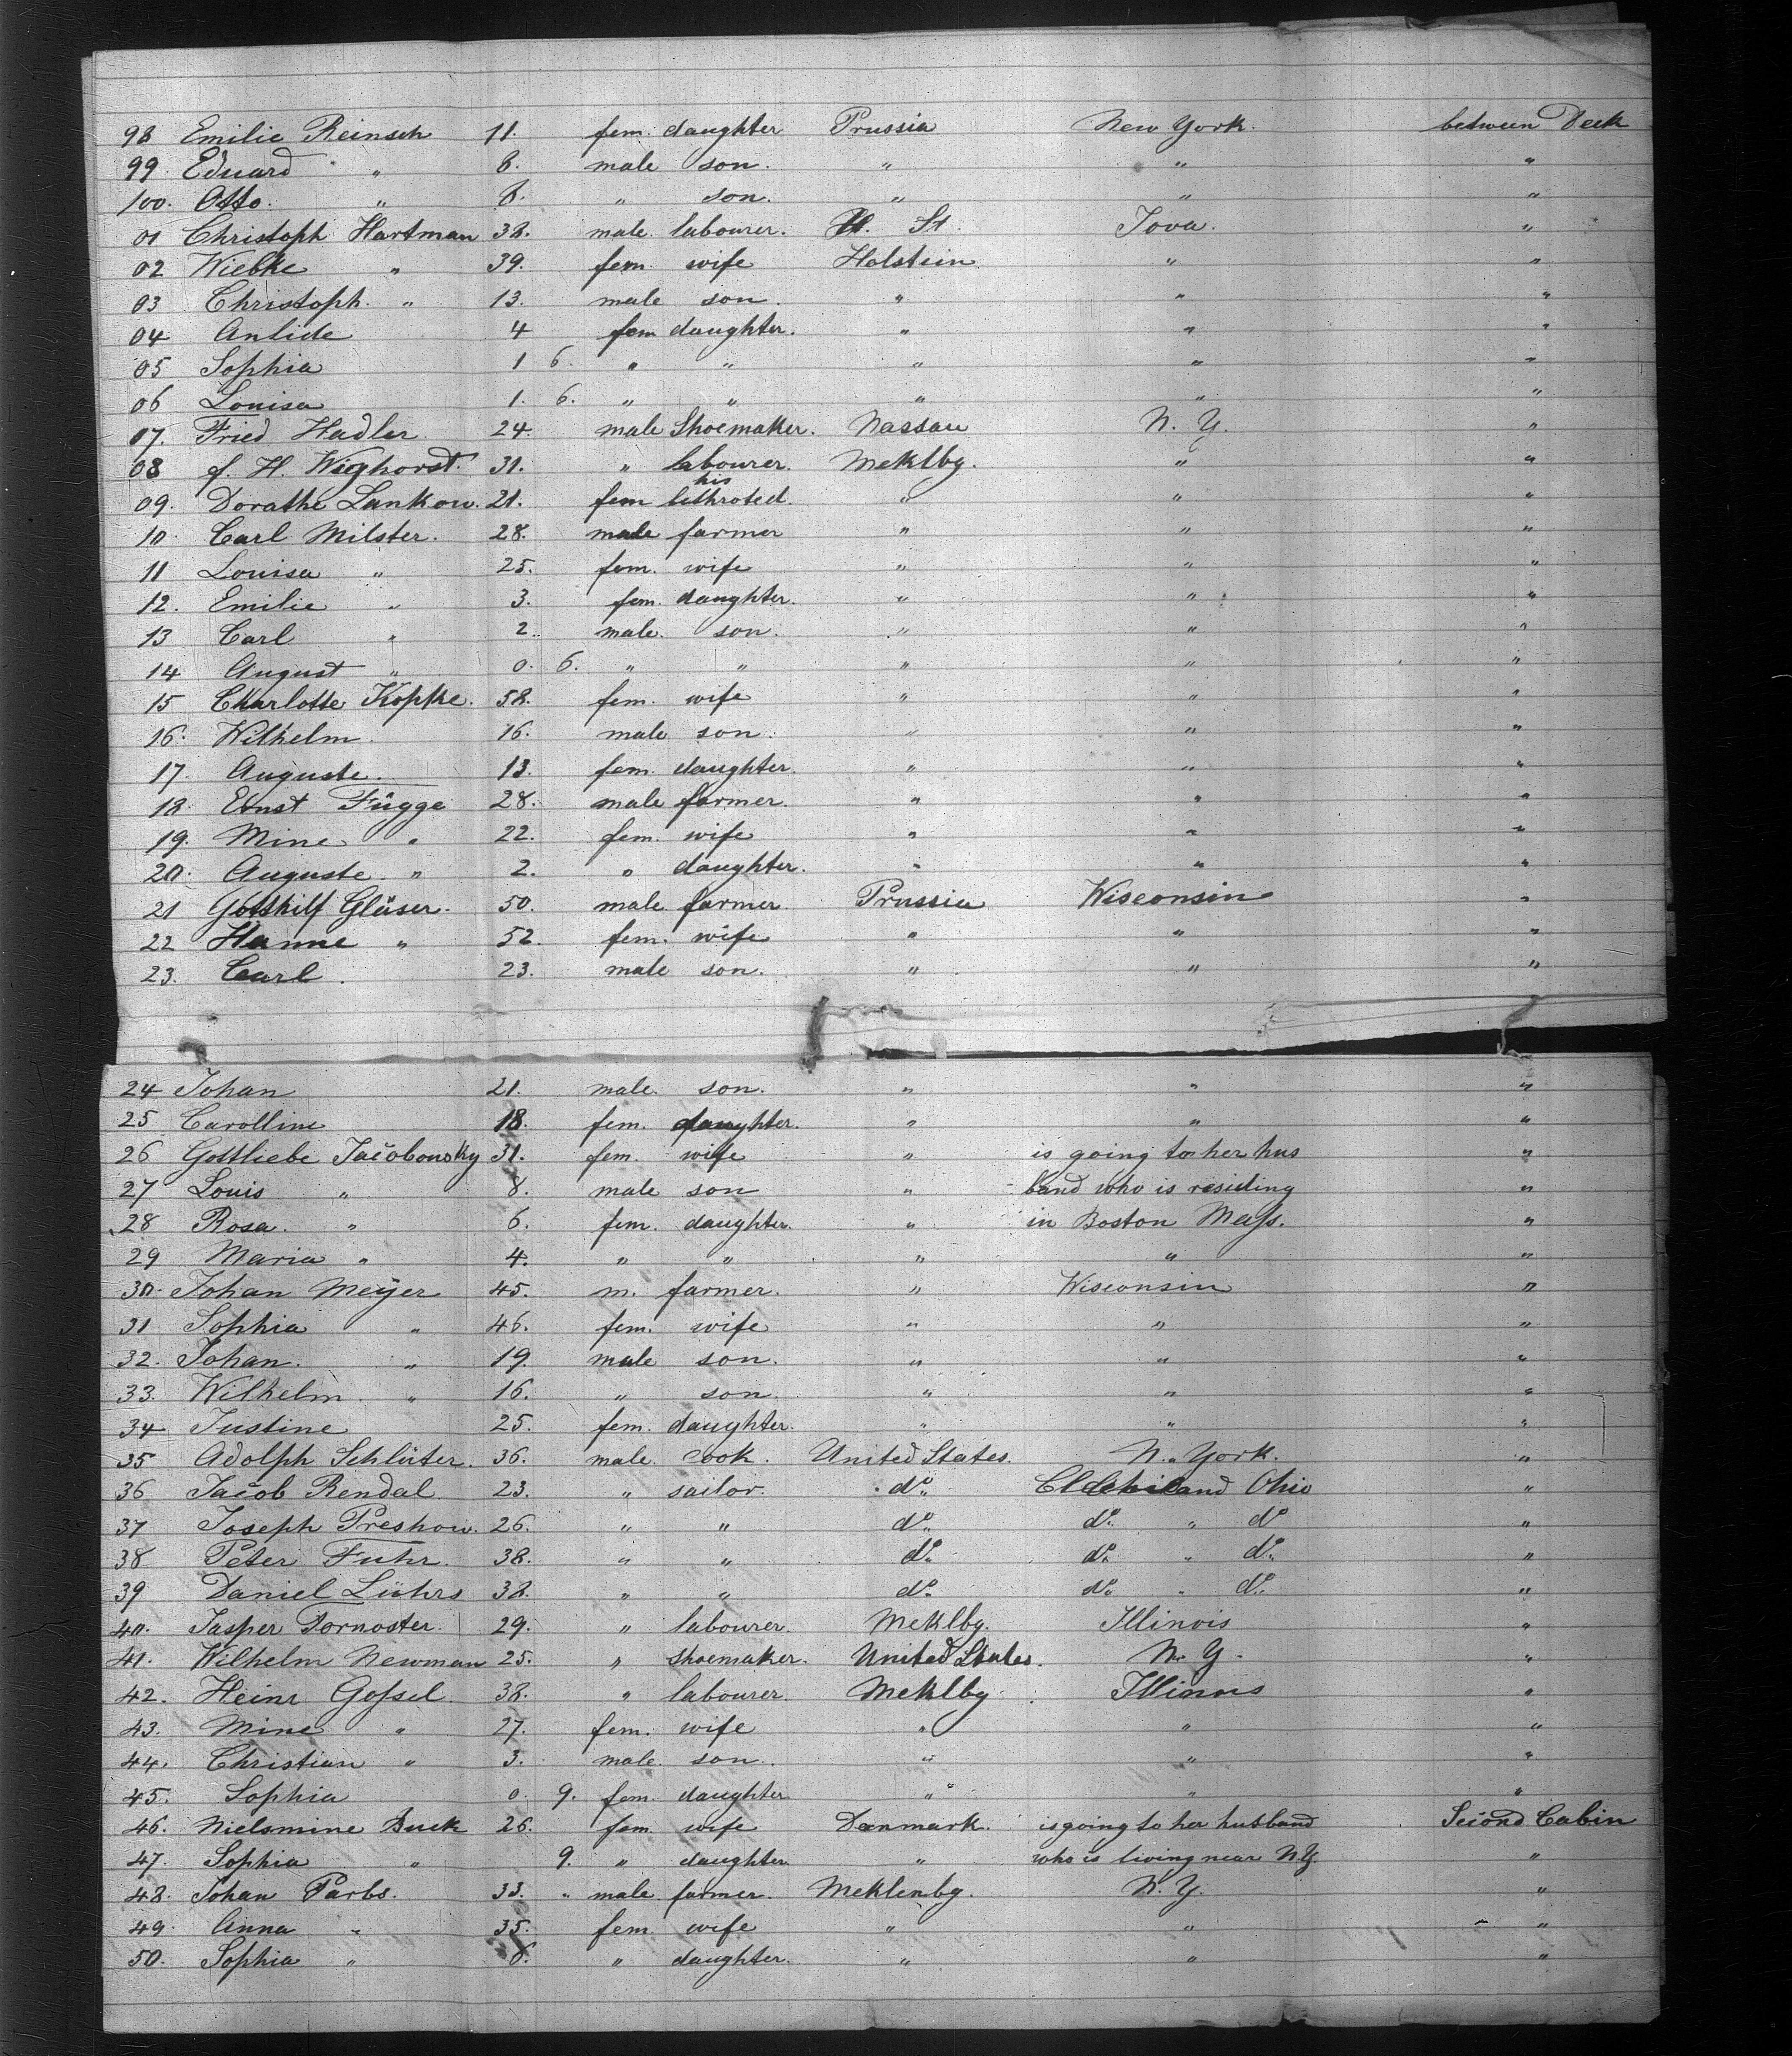 98 Emilie Reinsch 11. fem. daughter Prussia New York. between Deck
99 Eduard " 8. male son. " " "
100. Otto. " 8. " son. " " "
01 Christoph Hartman 38. male. labourer. St. Iova. "
02 Wiebke " 39. fem. wife Holstein " "
03 Christoph. " 13. male son. " " "
04 Anlide 4 fem daughter. " " "
05 Sophia 1 6. " " " " "
06 Louisa 1. 6. " " " " "
07. Fried Hadler 24. male Shoemaker. Nassau N. Y. "
08 f. H. Wighorst. 31. " labourer. Meklbg. " "
09. Dorathe Lankow. 21. fem his bethroted. " " "
10. Carl Milster. 28. male farmer " " "
11 Louisa " 25. fem. wife " " "
12. Emilie " 3. fem. daughter. " " "
13 Carl " 2. male. son. " " "
14 August " 0. 6. " " " " "
15 Charlotte Kopke. 58. fem. wife " " "
16. Wilhelm. 16. male son. " " "
17. Auguste. 13. fem. daughter. " " "
18. Ernst Függe 28. male farmer. " " "
19. Mine " 22. fem. wife " " "
20. Auguste. " 2. " daughter. " " "
21 Gotthilf Gläser. 50. male. farmer Prussia Wisconsin "
22 Hanne " 52. fem. wife " " "
23. Carl. 23. male son. " " "
24 Johan 21. male. son. " " "
25 Carolline 18. fem. daughter. " " "
26 Gottliebe Jacobousky 31. fem. wife " is going to her hus "
27 Louis " 8. male son " -band who is residing "
28 Rosa. " 6. fem. daughter. " in Boston Mass. "
29 Maria " 4. " " " " "
30. Johan Meÿer 45. m. farmer. " Wisconsin "
31 Sophia " 46. fem. wife " " "
32. Johan. " 19. male son. " " "
33. Wilhelm. " 16. " son. " " "
34 Justine 25. fem. daughter. " " "
35 Adolph Schlüter. 36. male. cook. United States. N. York. "
36 Jacob Rendal 23. " sailor. do. Ohio "
37 Joseph Preshow. 26. " " do. do. " do "
38 Peter Fuhr. 38. " " do. do. " do. "
39 Daniel Lührs 38. " " do. do. " do. "
40. Jasper Pornoster. 29. " labourer. Meklbg. Illinois "
41. Wilhelm Newman 25. " shoemaker. United States. N. Y. "
42. Heinr Gossel. 38. " labourer. Meklbg. Illinois "
43. Mine " 27. fem. wife " " "
44. Christian " 3. male. son. " " "
45. Sophia 0. 9. fem. daughter " " "
46. Nielsmine Buck 26. fem. wife Danmark. is going to her husband Second Cabin
47. Sophia " 9. " daughter " who is living near N.Y. "
48. Johan Parbs. 33. " male. farmer. Meklenbg. N. Y. "
49. Anna " 35. fem. wife " " "
50. Sophia " 6. " daughter. " " "